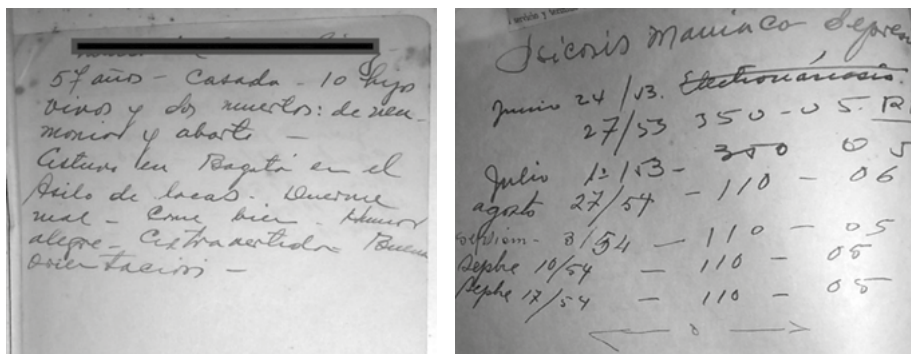 57 años - Casada - 10 hijos
vivos y dos muertos: de neu-
monia y aborto -
Estuvo en Bogotá en el
Asilo de locas. Duerme
mal - Come bien - Humor
alegre - Extravertida - Buena
orientacion -
servicio y
Sicosis Maniaco Depresi
Junio 24/53. Electronárcosis
27/53 350-05. R
Julio 1º 153- 350 0 5
agosto 27/54 - 110 - 06
3/54 - 110 - 05
Sepbre 10/54 - 110 - 05
Sepbre 17/54 - 110 - 05